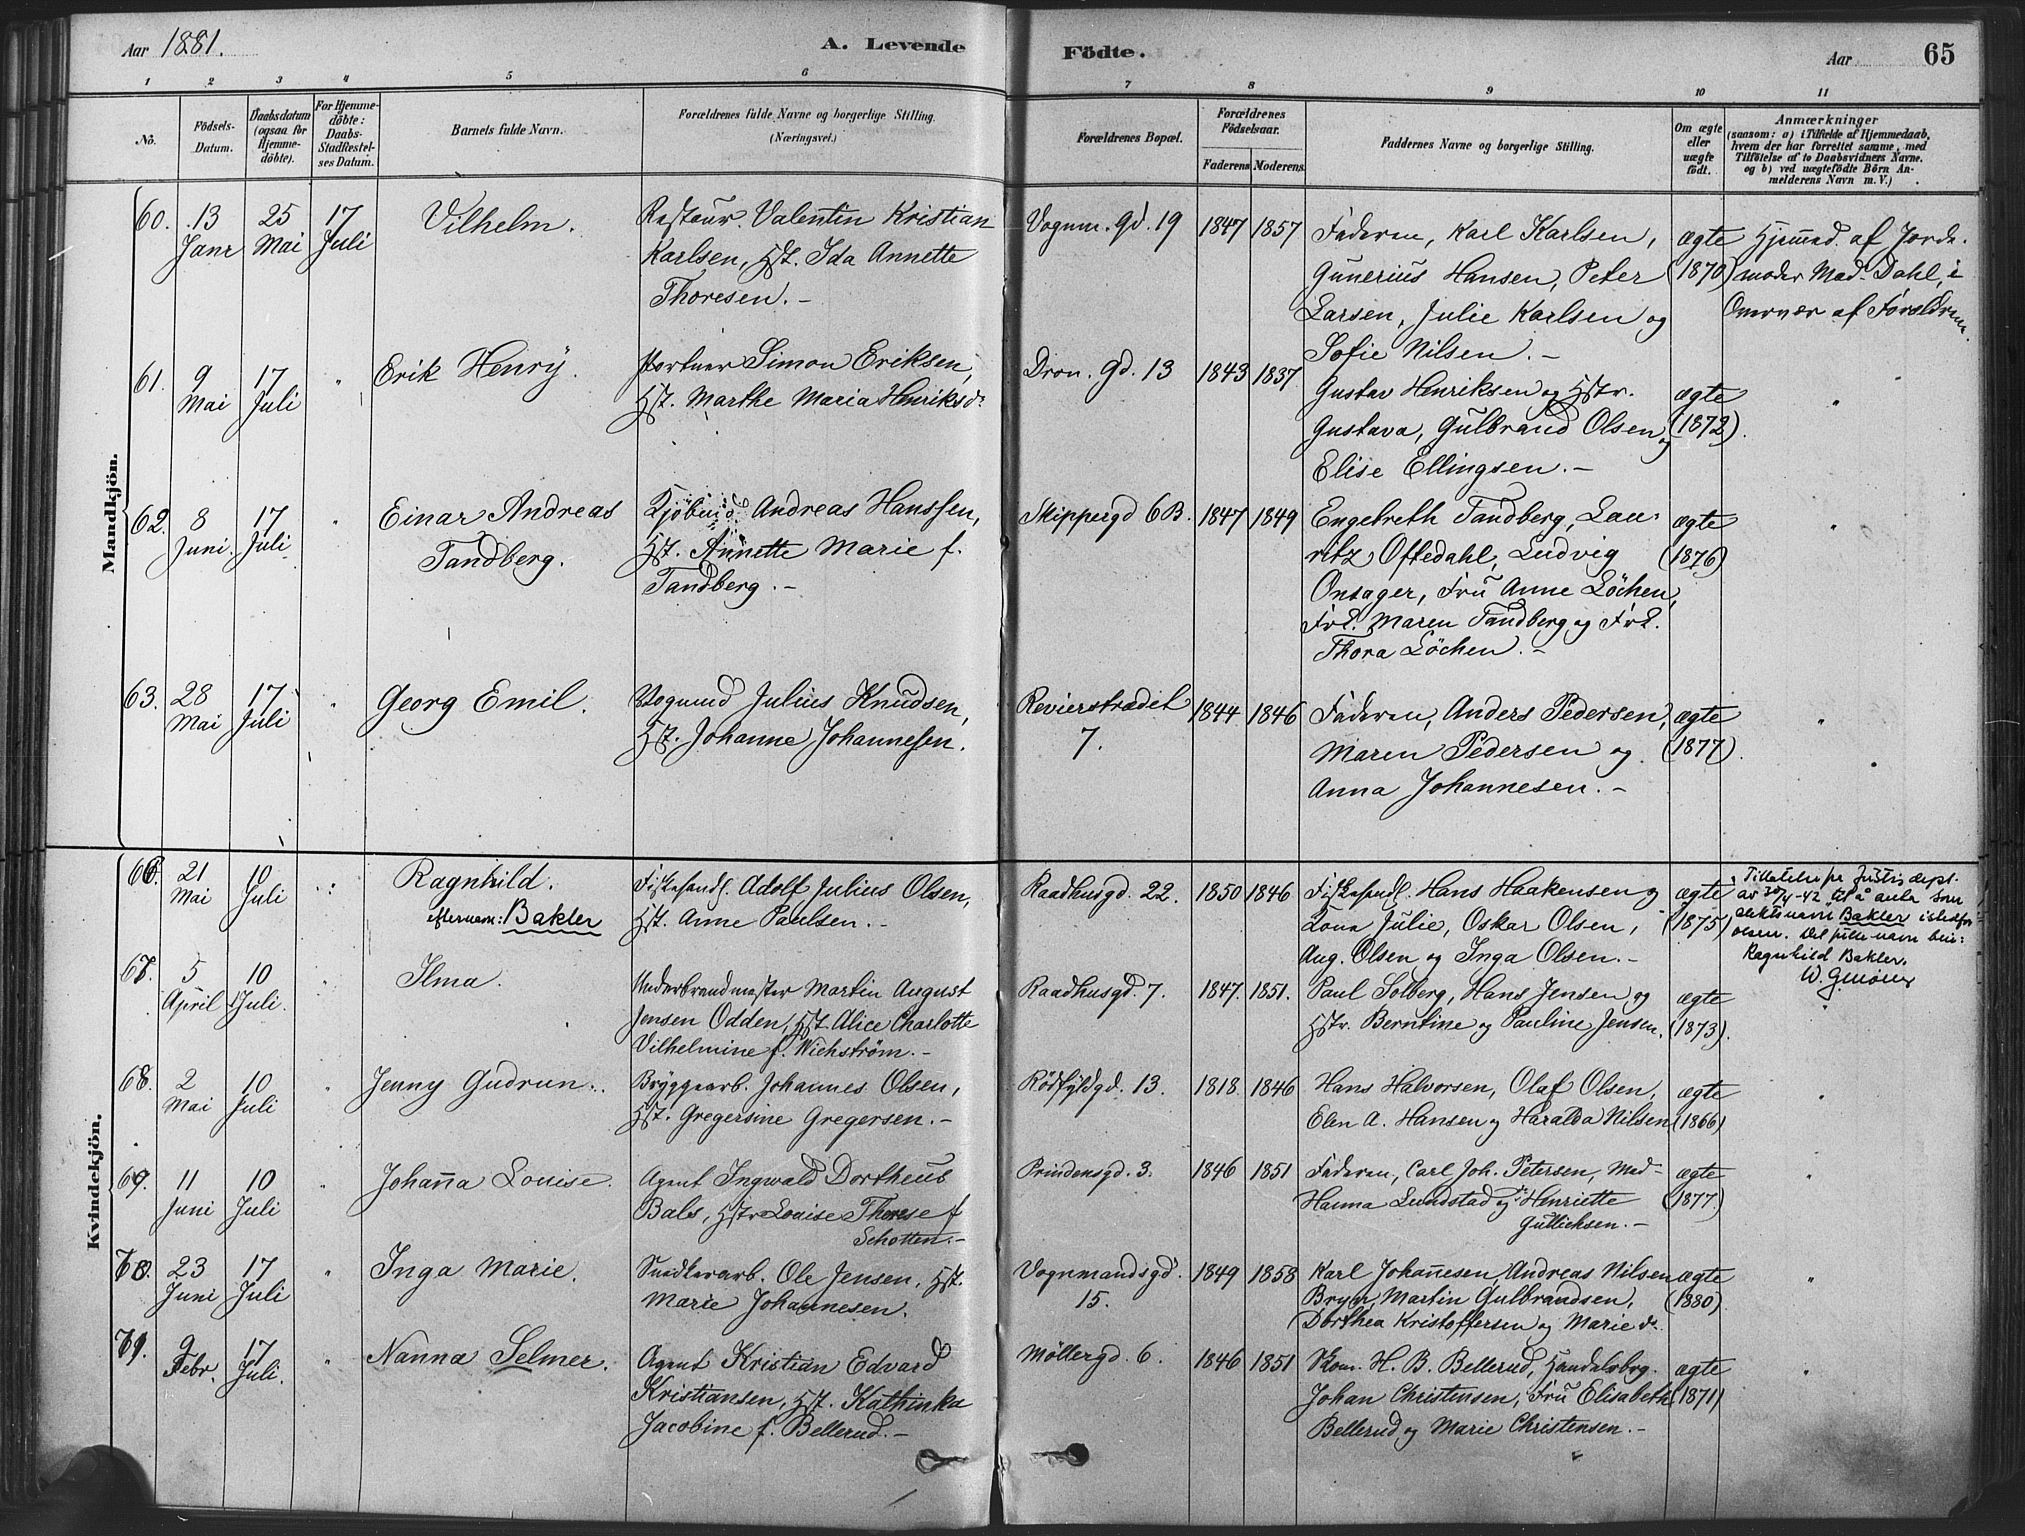 Aar 1881.
A. Levende
Födte.
Aar
65
1 2 3 4 5 6 7 8 9 10 11
No.
Födsels-Datum.
Daabsdatum (ogsaa for Hjemme-döbte).
For Hjemme-döbte: Daabs-Stadfæstel-ses Datum.
Barnets fulde Navn.
Forældrenes fulde Navne og borgerlige Stilling.
(Næringsvei.)
Forældrenes Bopæl.
Forældrenes Födselsaar.
Faderens Moderens
Faddernes Navne og borgerlige Stilling.
Om ægte eller uægte födt.
Anmærkninger
(saasom: a) i Tilfælde af Hjemmedaab,
hvem der har forrettet samme, med
Tilföielse af to Daabsvidners Navne,
og b) ved uægtefödte Börn An-
melderens Navn m. V.)
Mandkjön.
60. 13 Janr 25 Mai 17 Juli Vilhelm.
Restaur. Valentin Kristian
Karlsen, Hst. Ida Annette
Thoresen. -
Vognm. gd. 19 1847 1857
Faderen, Karl Karlsen,
Gunerius Hansen, Peter
Larsen, Julie Karlsen og
Sofie Nilsen. -
ægte (1870)
Hjemmed. af Jorde-
moder Mad. Dahl, i
Overvær af Forældrene
61. 9 Mai 17 Juli " Erik Henry.
Portner Simon Eriksen,
Hst. Marthe Maria Henriksdr
Dron. gd. 13 1843 1837
Gustav Henriksen og Hstr.
Gustava, Gulbrand Olsen og
Elise Ellingsen. -
ægte (1872). "
62. 8 Juni. 17 Juli " Einar Andreas
Tandberg.
Kjöbmd. Andreas Hanssen,
Hst. Annette Marie f.
Tandberg. -
Skippergd 6B. 1847 1849
Engebreth Tandberg, Lau-
ritz Oftedahl, Ludvig
Onsager, Fru Anne Löchen,
Frk. Maren Tandberg og Frk.
Thora Löchen. -
ægte (1876) "
63. 28 Mai 17 Juli " Georg Emil.
Vogmd Julius Knudsen,
Hst. Johanne Johannesen.
Revierstrædet
7.
1844 1846
Faderen, Anders Pedersen,
Maren Pedersen og
Anna Johannesen. -
ægte (1877). "
Kvindekjön.
66. 21 Mai 10 Juli " Ragnhild.
efternavn: Bakler
Fiskehandl. Adolf Julius Olsen,
Hst. Anne Paulsen. -
Raadhusgd. 22. 1850 1846
Fiskehandl. Hans Haakensen og
Kona Julie, Oskar Olsen,
Aug. Olsen og Inga Olsen. -
ægte (1875)
Tillatelse fr Justisdept.
av 30/4-42 til å anta som
slektsnavn Bakler istedfor
Olsen. Det fulle navn blir:
Ragnhild Bakler.
67. 5 April 10 Juli. " Ilma.
Underbrandmester Martin August
Jensen Odden, Hst. Alice Charlotte
Vilhelmine f. Wichström. -
Raadhusgd. 7. 1847. 1851.
Paul Solberg, Hans Jensen og
Hstr. Berntine og Pauline Jensen.
ægte (1873). "
68. 2 Mai 10 Juli " Jenny Gudrun.
Bryggearb. Johannes Olsen,
Hst. Gregersine Gregersen. -
Rödfyldgd. 13. 1818. 1846
Hans Halvorsen, Olaf Olsen,
Elen A. Hansen og Haralda Nilsen
ægte (1866) "
69. 11 Juni 10 Juli " Johanna Louise.
Agent Ingwald Dortheus
Bals, Hstr Louise Therese f
Schotten. -
Prindensgd. 3. 1846 1851
Faderen, Carl Joh. Petersen, Mad-
Hanna Lundstad og Henriette
Gullichsen. -
ægte (1877.) "
70. 23 Juni 17 Juli " Inga Marie.
Snedkerarb. Ole Jensen, Hst.
Marie Johannesen.
Vognmandsgd.
15.
1849 1858
Karl Johannesen, Andreas Nilsen
Bryn, Martin Gulbrandsen,
Dorthea Kristoffersen og Marie do.
ægte (1880). "
71. 9 Febr. 17 Juli. " Nanna Selmer.
Agent Kristian Edvard
Kristiansen, Hst. Kathinka
Jacobine f. Bellerud. -
Möllergd. 6. 1846 1851
H. B. Bellerud, Handelsbrg.
Johan Christensen, Fru Elisabeth
Bellerud, og Marie Christensen. -
ægte (1871) "